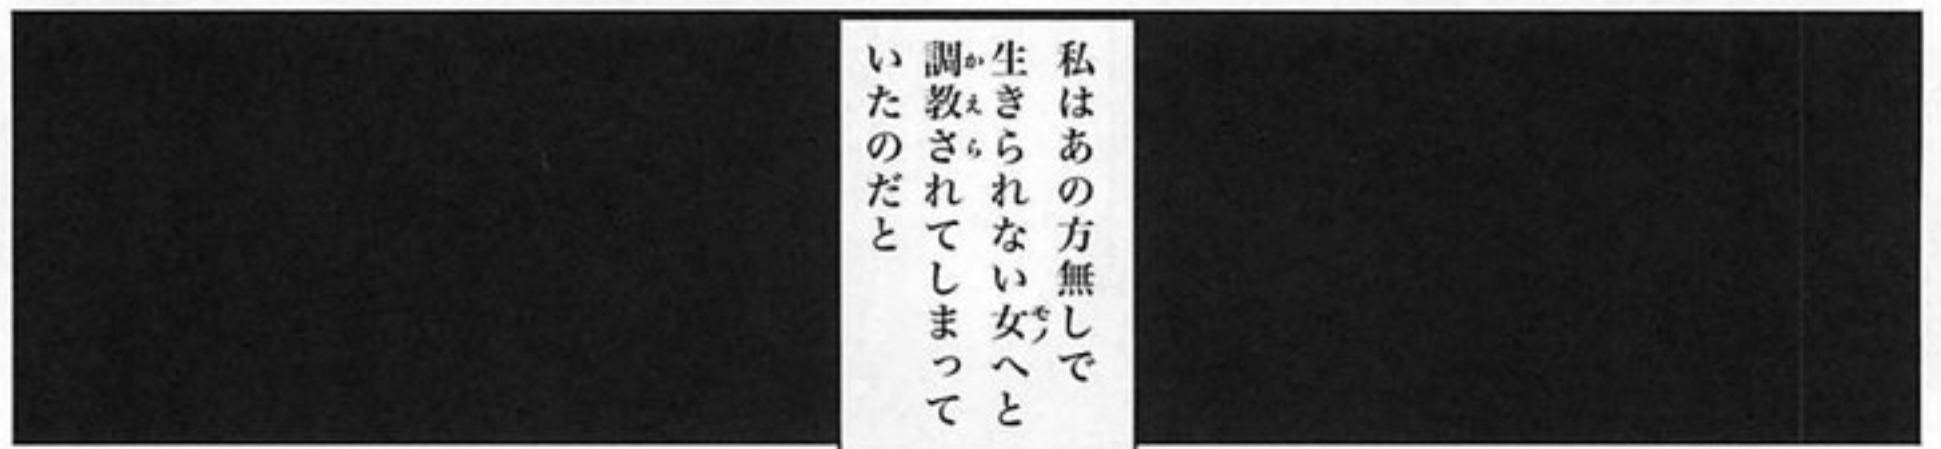 私はあの方無しで
生きられない女へと
調教されてしまって
いたのだと